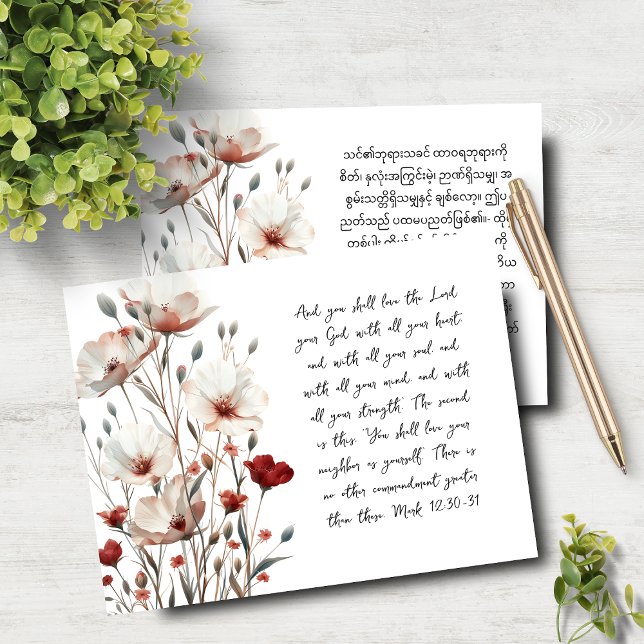 သင်၏ဘုရားသခင် ထာဝရဘုရားကို
စိတ်၊ နှလုံးအကြွင်းမဲ့၊ ဉာဏ်ရှိသမျှ၊ အ
စွမ်းသတ္တိရှိသမျှနှင့် ချစ်လော့။ ဤပ
ညတ်သည် ပထမပညတ်ဖြစ်၏။- ထို
ကို
And you shall love the Lord
your God with all your heart
and with all your soul, and
with all your mind, and with
all your strength.' The second
is this: 'You shall love your
neighbor as yourself.' There is
no other commandment greater
than these. Mark 12:30-31